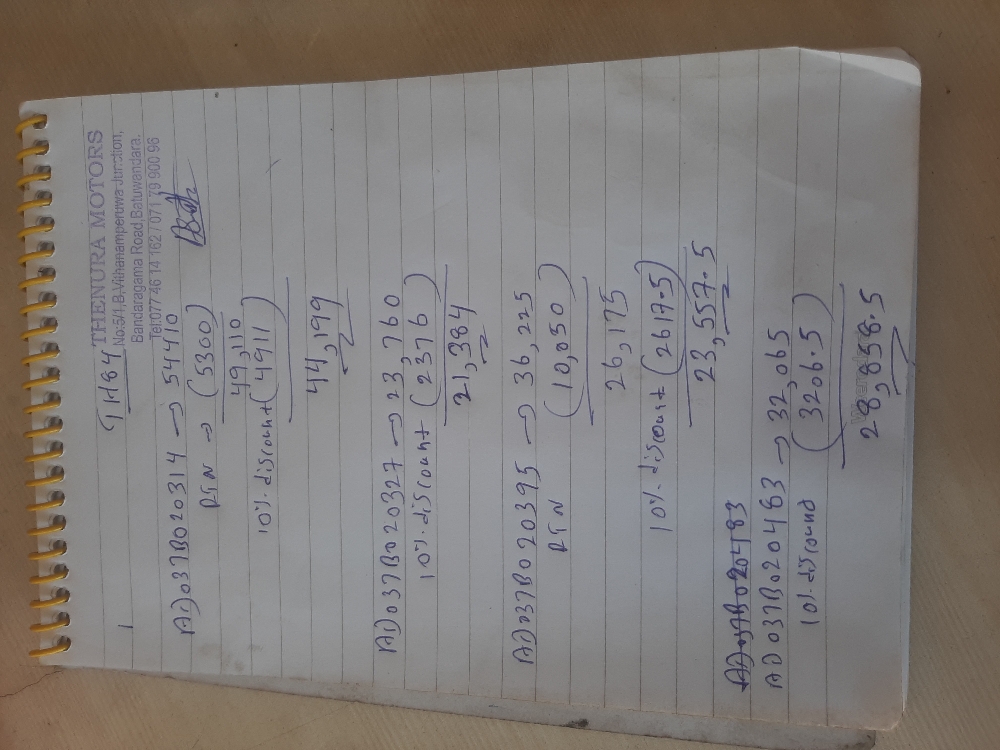 THENURA MOTORS
No:5/1,B,Vithanamperuwa Junction,
Bandaragama Road,Batuwandara.
Tel:077 46 14 162 / 071 79 900 96
1
AD037B020314 → 54410
RTN → (5300)
49,110
10% discount (4911)
44,199
AD037B020327 → 23,760
10% discount (2376)
21,384
AD037B020395 → 36,225
RTN (10,050)
26,175
10% discount (2617.5)
23,557.5
AD037B020483
AD037B020483 → 32,065
10% discound (3206.5)
28,858.5